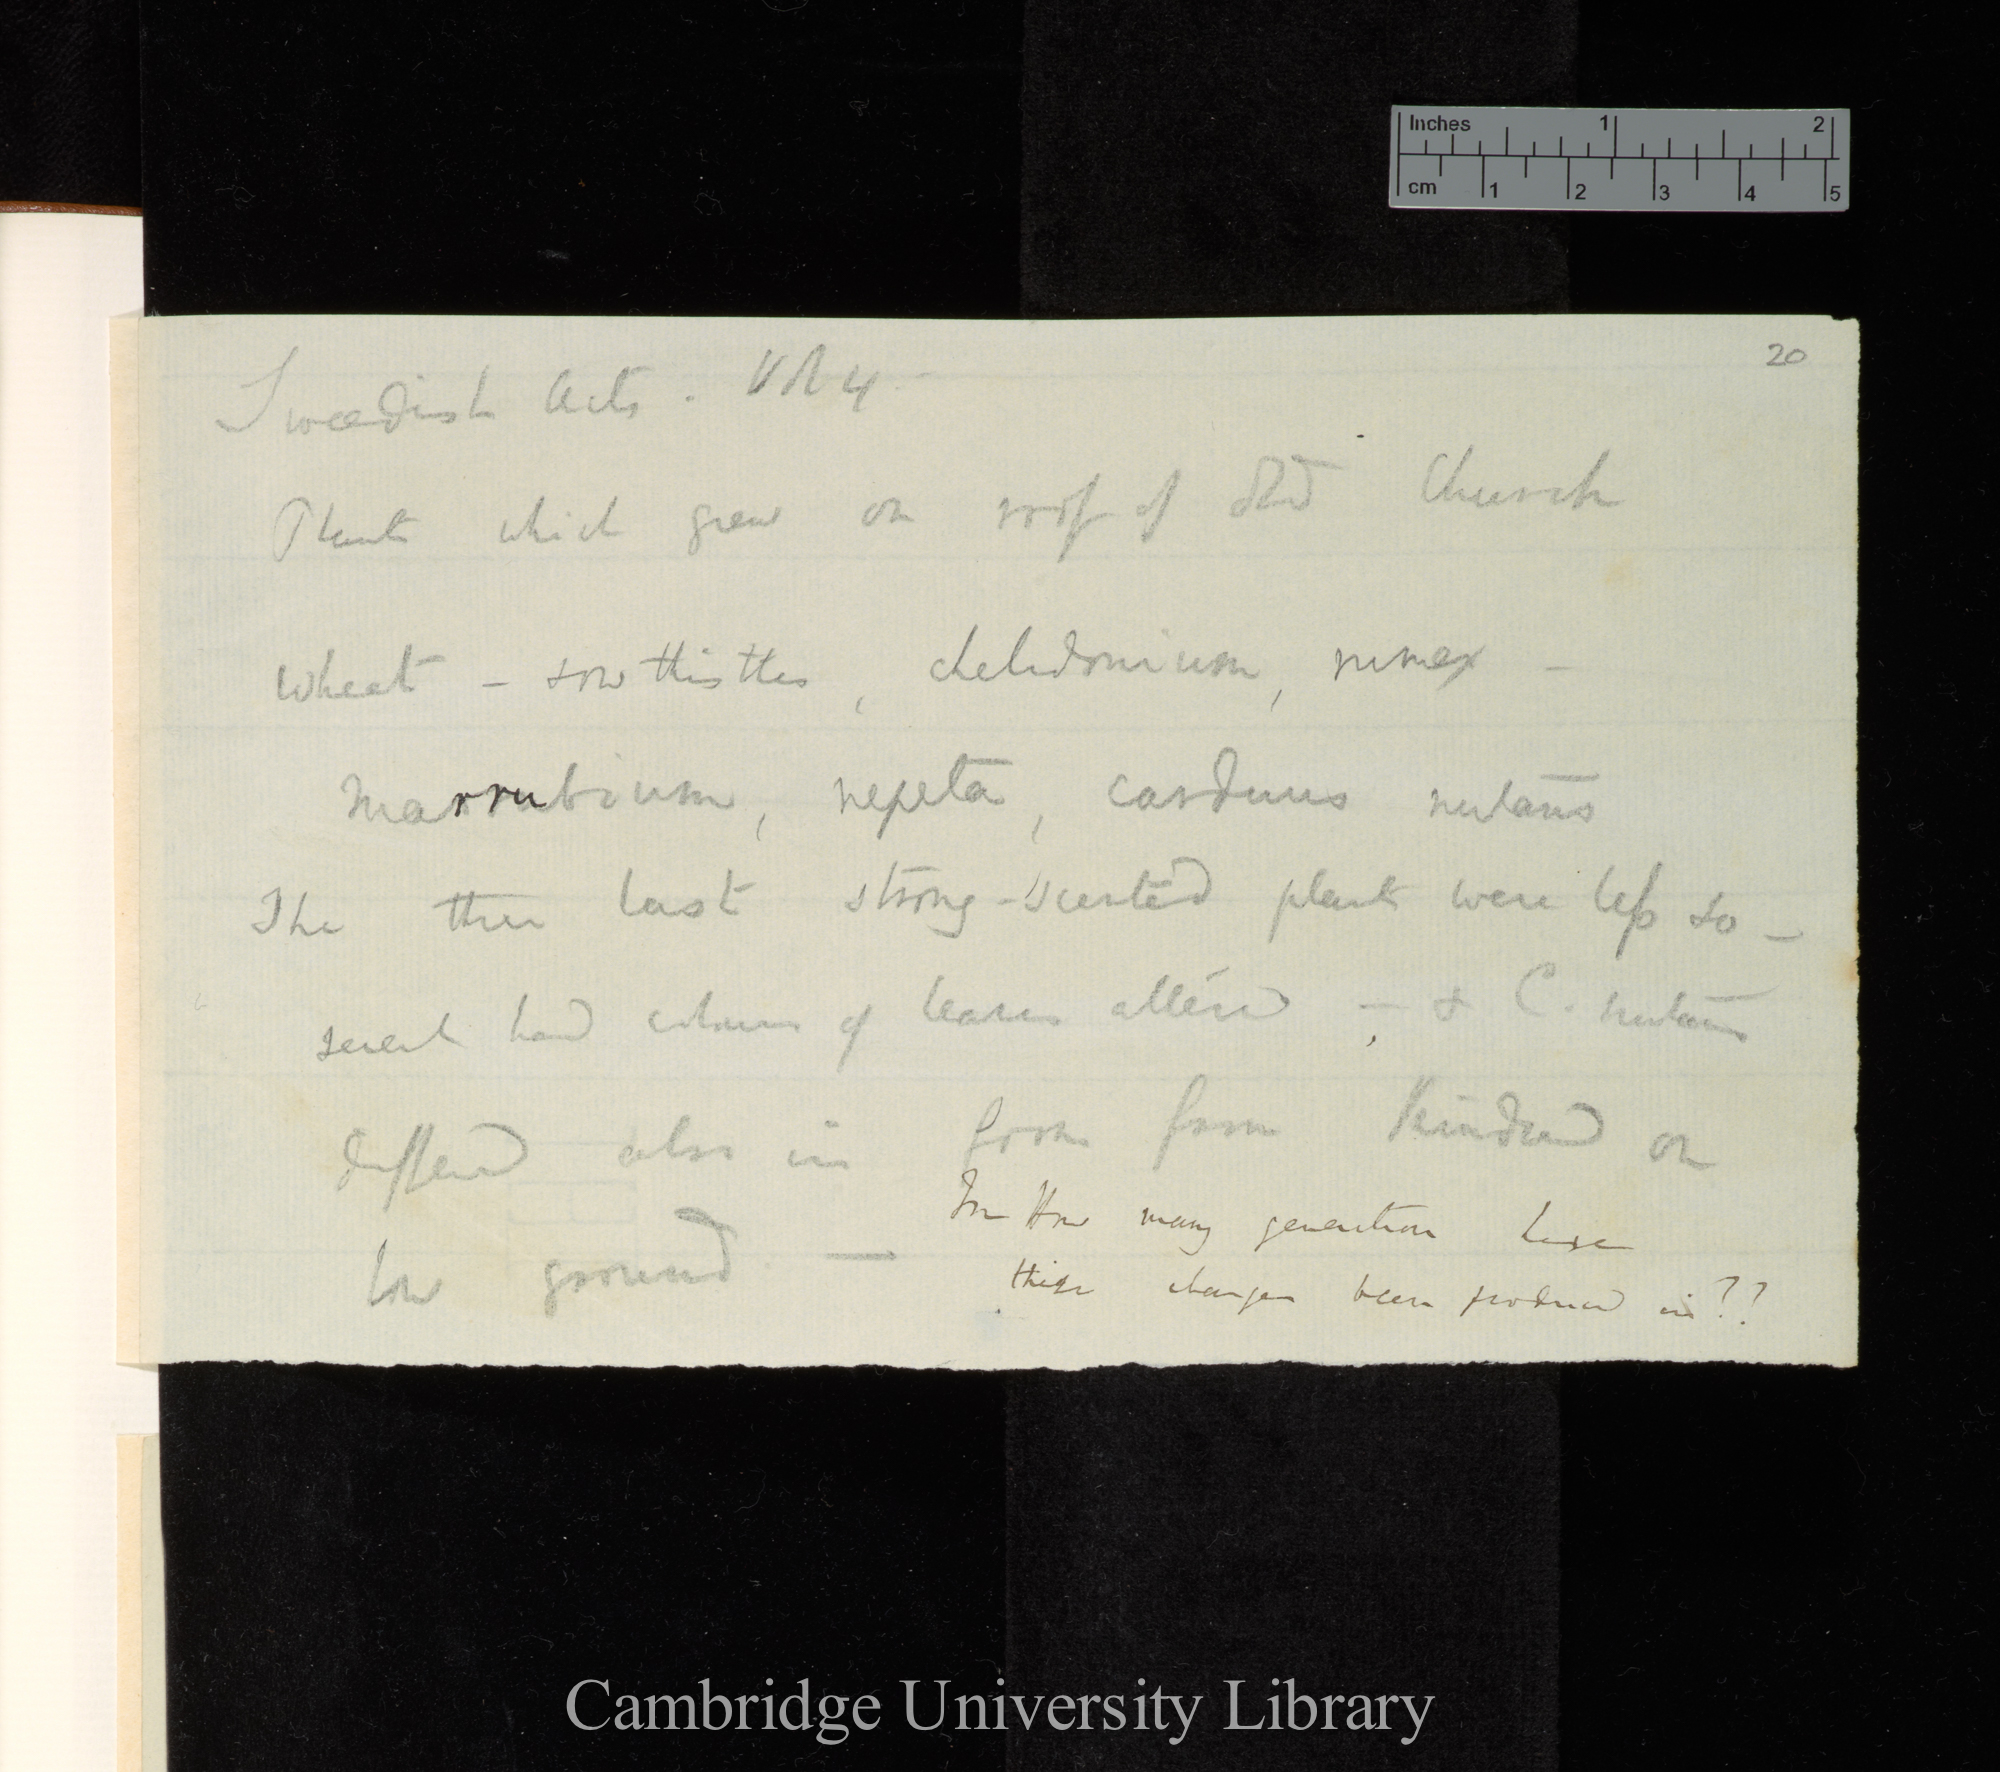 Inches 1 2
cm 1 2 3 4 5
20
Swedish Acts. Vol 4 —
Plants which grew on roof of old Church
Wheat — sow thistles, chelidonium, rumex —
Marrubium, nepeta, carduus nutans
The three last strong-scented plants were less so —
several had colours of leaves altered —, & C. nutans
differed also in form from kindred on
low ground —
How many generations have
these changes been produced in??
Cambridge University Library